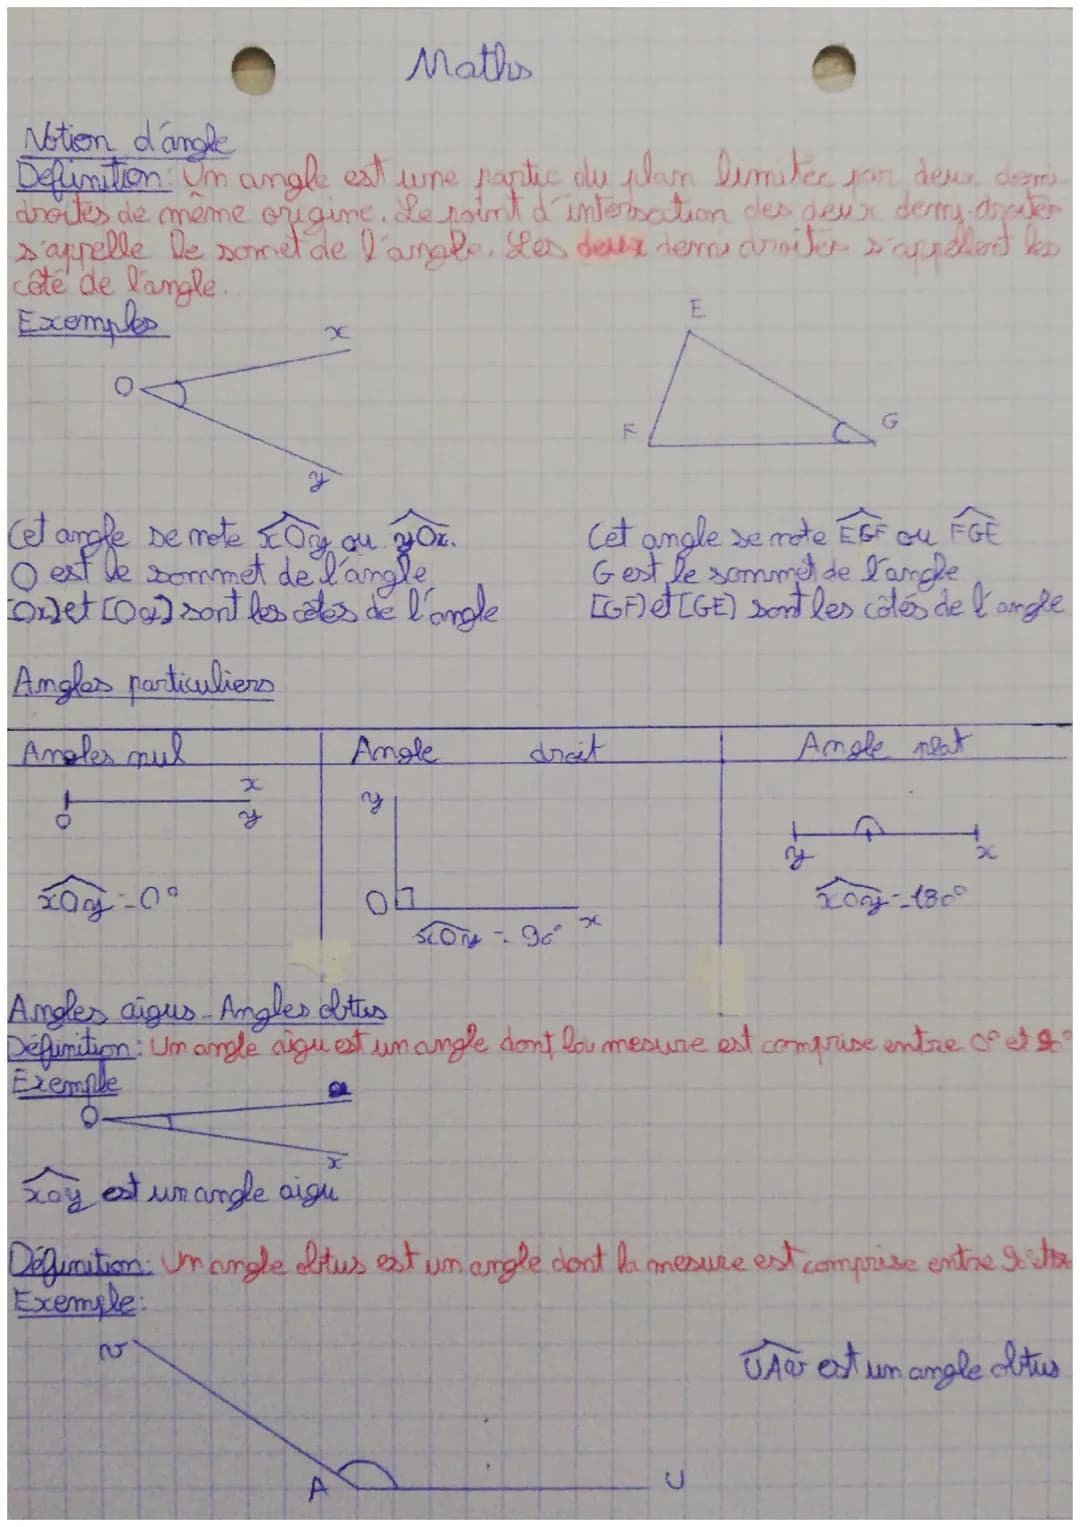 Maths
Notion d'angle
Définition: Um angle est une partie du plan limitée par deux demi
droites de même origine. Le point d'intersection des deux demy-droites
s'appelle le somet de l'angle. Les deux demi droites s'appellent les
côté de l'angle.
Exemples
x
O
y
E
F
G
Cet angle se note xOy ou yOx.
O est le sommet de l'angle
[Ox) et [Oy) sont les côtés de l'angle
Cet angle se note EGF ou FGE
G est le sommet de l'angle
[GF) et [GE) sont les côtés de l'angle
Angles particuliers
Angles nul
Angle droit
Angle plat
x
O
y
xOy = 0°
y
O
x
xOy = 90°
y
x
xOy = 180°
Angles aigus - Angles obtus
Définition: Un angle aigu est un angle dont la mesure est comprise entre 0° et 9
Exemple
O
x
xoy est un angle aigu
Définition: Un angle obtus est un angle dont la mesure est comprise entre
Exemple:
v
A
U
UAv est un angle obtus